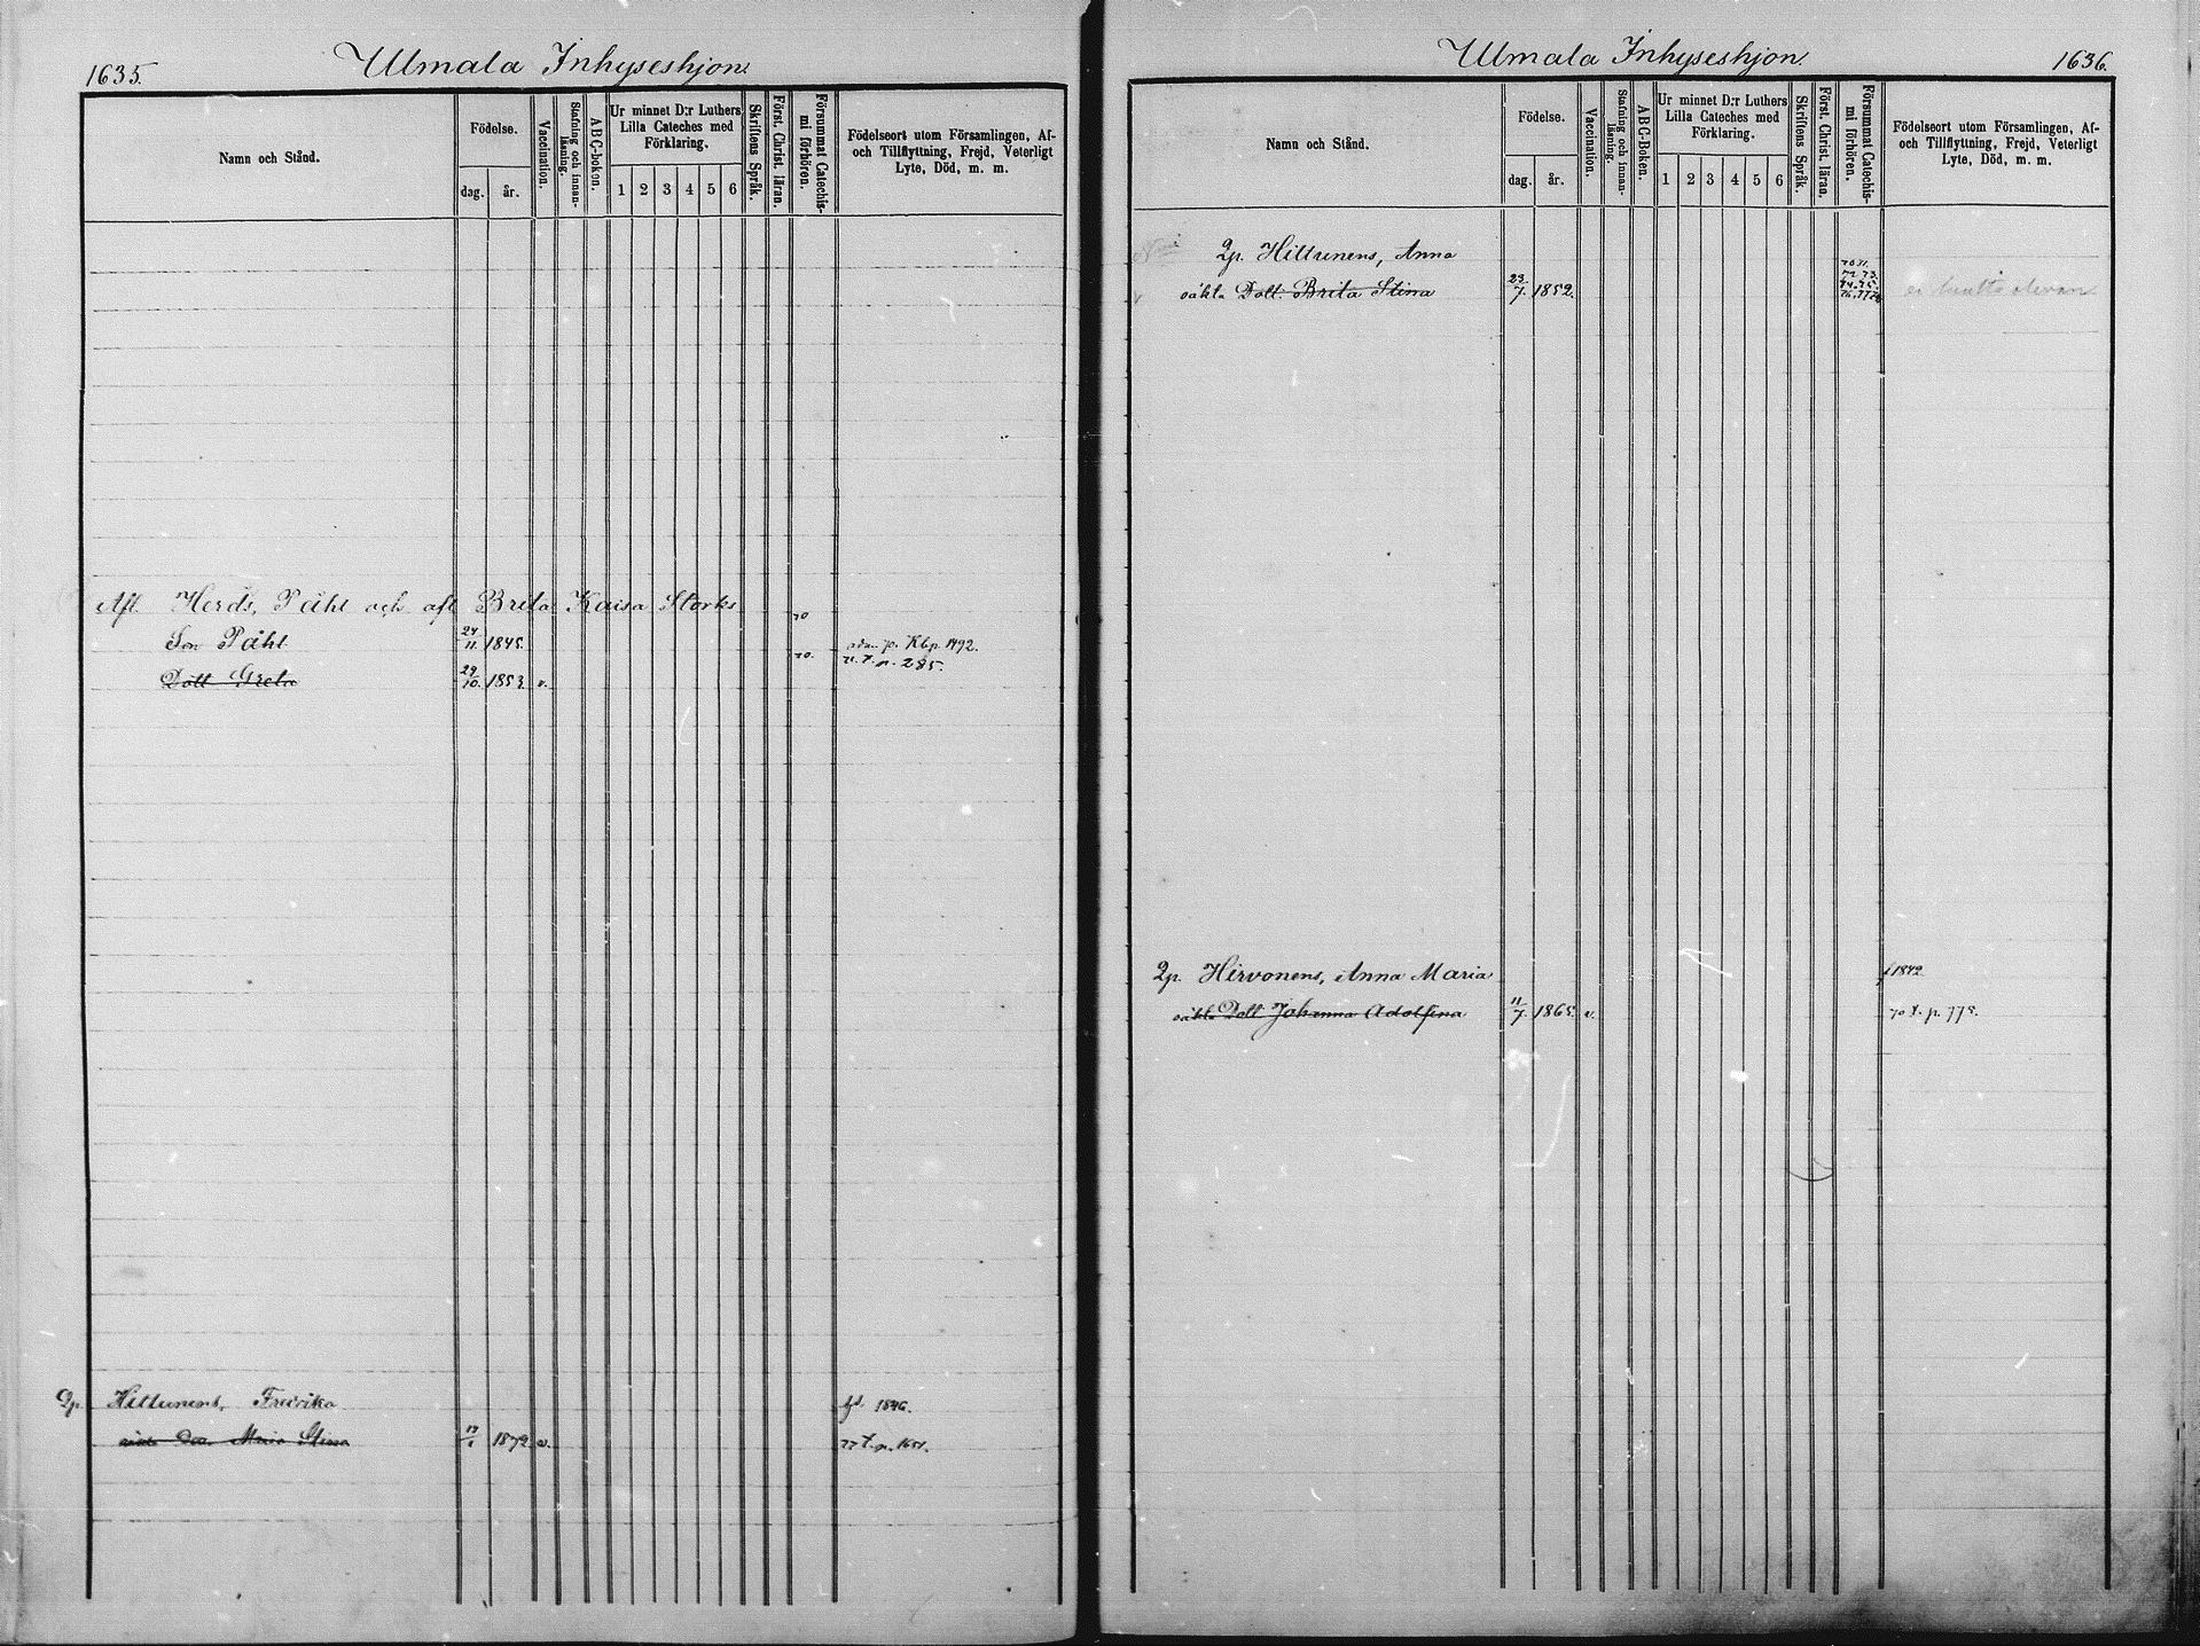 1635.
Ulmala Inhyseshjon.
Namn och Stånd.
Födelse.
dag.
år.
Vaccination.
Stafning och innan-
läsning.
ABC-boken.
Ur minnet D:r Luthers
Lilla Cateches med
Förklaring.
1 2 3 4 5 6
Skriftens Språk.
Först. Christ. läran.
Försummat Catechis-
mi förhören.
Födelseort utom Församlingen, Af-
och Tillflyttning, Frejd, Veterligt
Lyte, Död, m. m.
Afl. Herds, Påhl och afl Brita Kaisa Storks 70
Son Påhl 24/11. 1845. 70. p. Kbp. 1492.
Dott Greta 29/10. 1853. v. p. 285.
Qp. Hiltunens, Fredrika fd. 1846.
Maria Stina 1872 v. 77 t. p. 1651.
Ulmala Inhyseshjon.
1636.
Namn och Stånd.
Födelse.
dag.
år.
Vaccination.
Stafning och innan-
läsning.
ABC-Boken.
Ur minnet D:r Luthers
Lilla Cateches med
Förklaring.
1 2 3 4 5 6
Skriftens Språk.
Först. Christ. läran.
Försummat Catechis-
mi förhören.
Födelseort utom Församlingen, Af-
och Tillflyttning, Frejd, Veterligt
Lyte, Död, m. m.
Qp. Hiltunens, Anna
oäkta Dott. Brita Stina 23/7. 1852.
70 71.
72 73.
74. 75.
76. 77
Qp. Hirvonens, Anna Maria f 1842
oäkta Dott Johanna Adolfina 11/7. 1865. v. 70 t. p. 775.